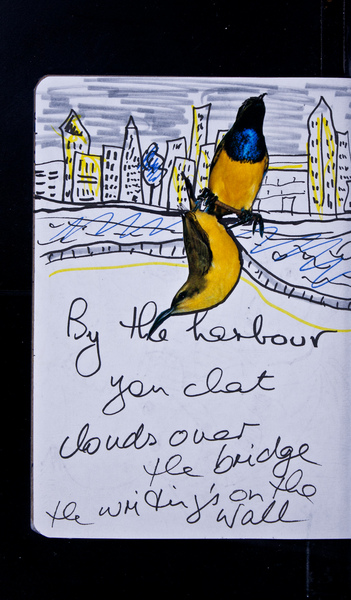 By the harbour
you chat
clouds over
the bridge
the writing's on the
wall